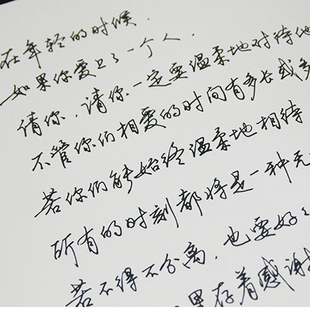 在年轻的时候,
如果你爱上了一个人,
请你,请你一定要温柔地对待他
不管你们相爱的时间有多长或多
若你们能始终温柔地相待
所有的时刻都将是一种无
若不得不分离,也要好
里存着感谢